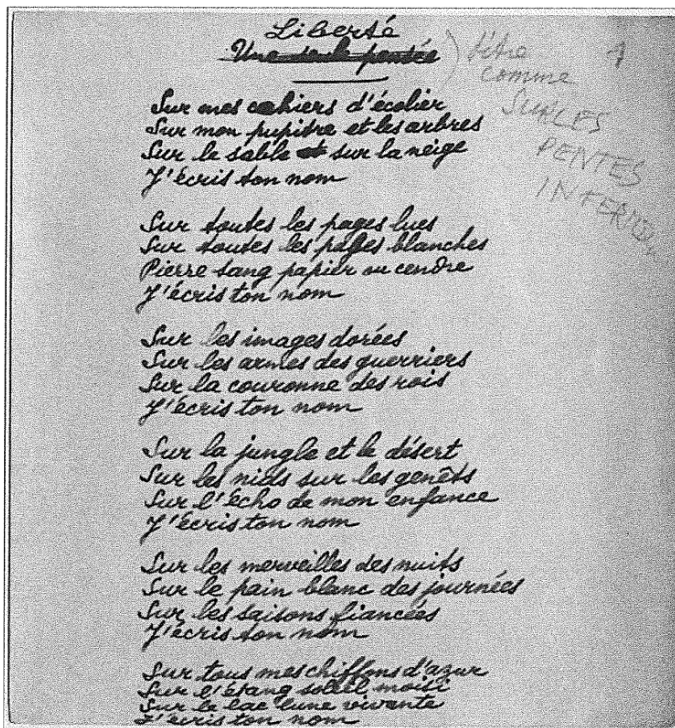 Liberté
Une seule pensée
titre
comme
1
SUR LES
PENTES
Sur mes cahiers d'écolier
Sur mon pupitre et les arbres
Sur le sable et sur la neige
J'écris ton nom
Sur toutes les pages lues
Sur toutes les pages blanches
Pierre sang papier ou cendre
J'écris ton nom
Sur les images dorées
Sur les armes des guerriers
Sur la couronne des rois
J'écris ton nom
Sur la jungle et le désert
Sur les nids sur les genêts
Sur l'écho de mon enfance
J'écris ton nom
Sur les merveilles des nuits
Sur le pain blanc des journées
Sur les saisons fiancées
J'écris ton nom
Sur tous mes chiffons d'azur
Sur l'étang soleil moisi
Sur le lac lune vivante
J'écris ton nom